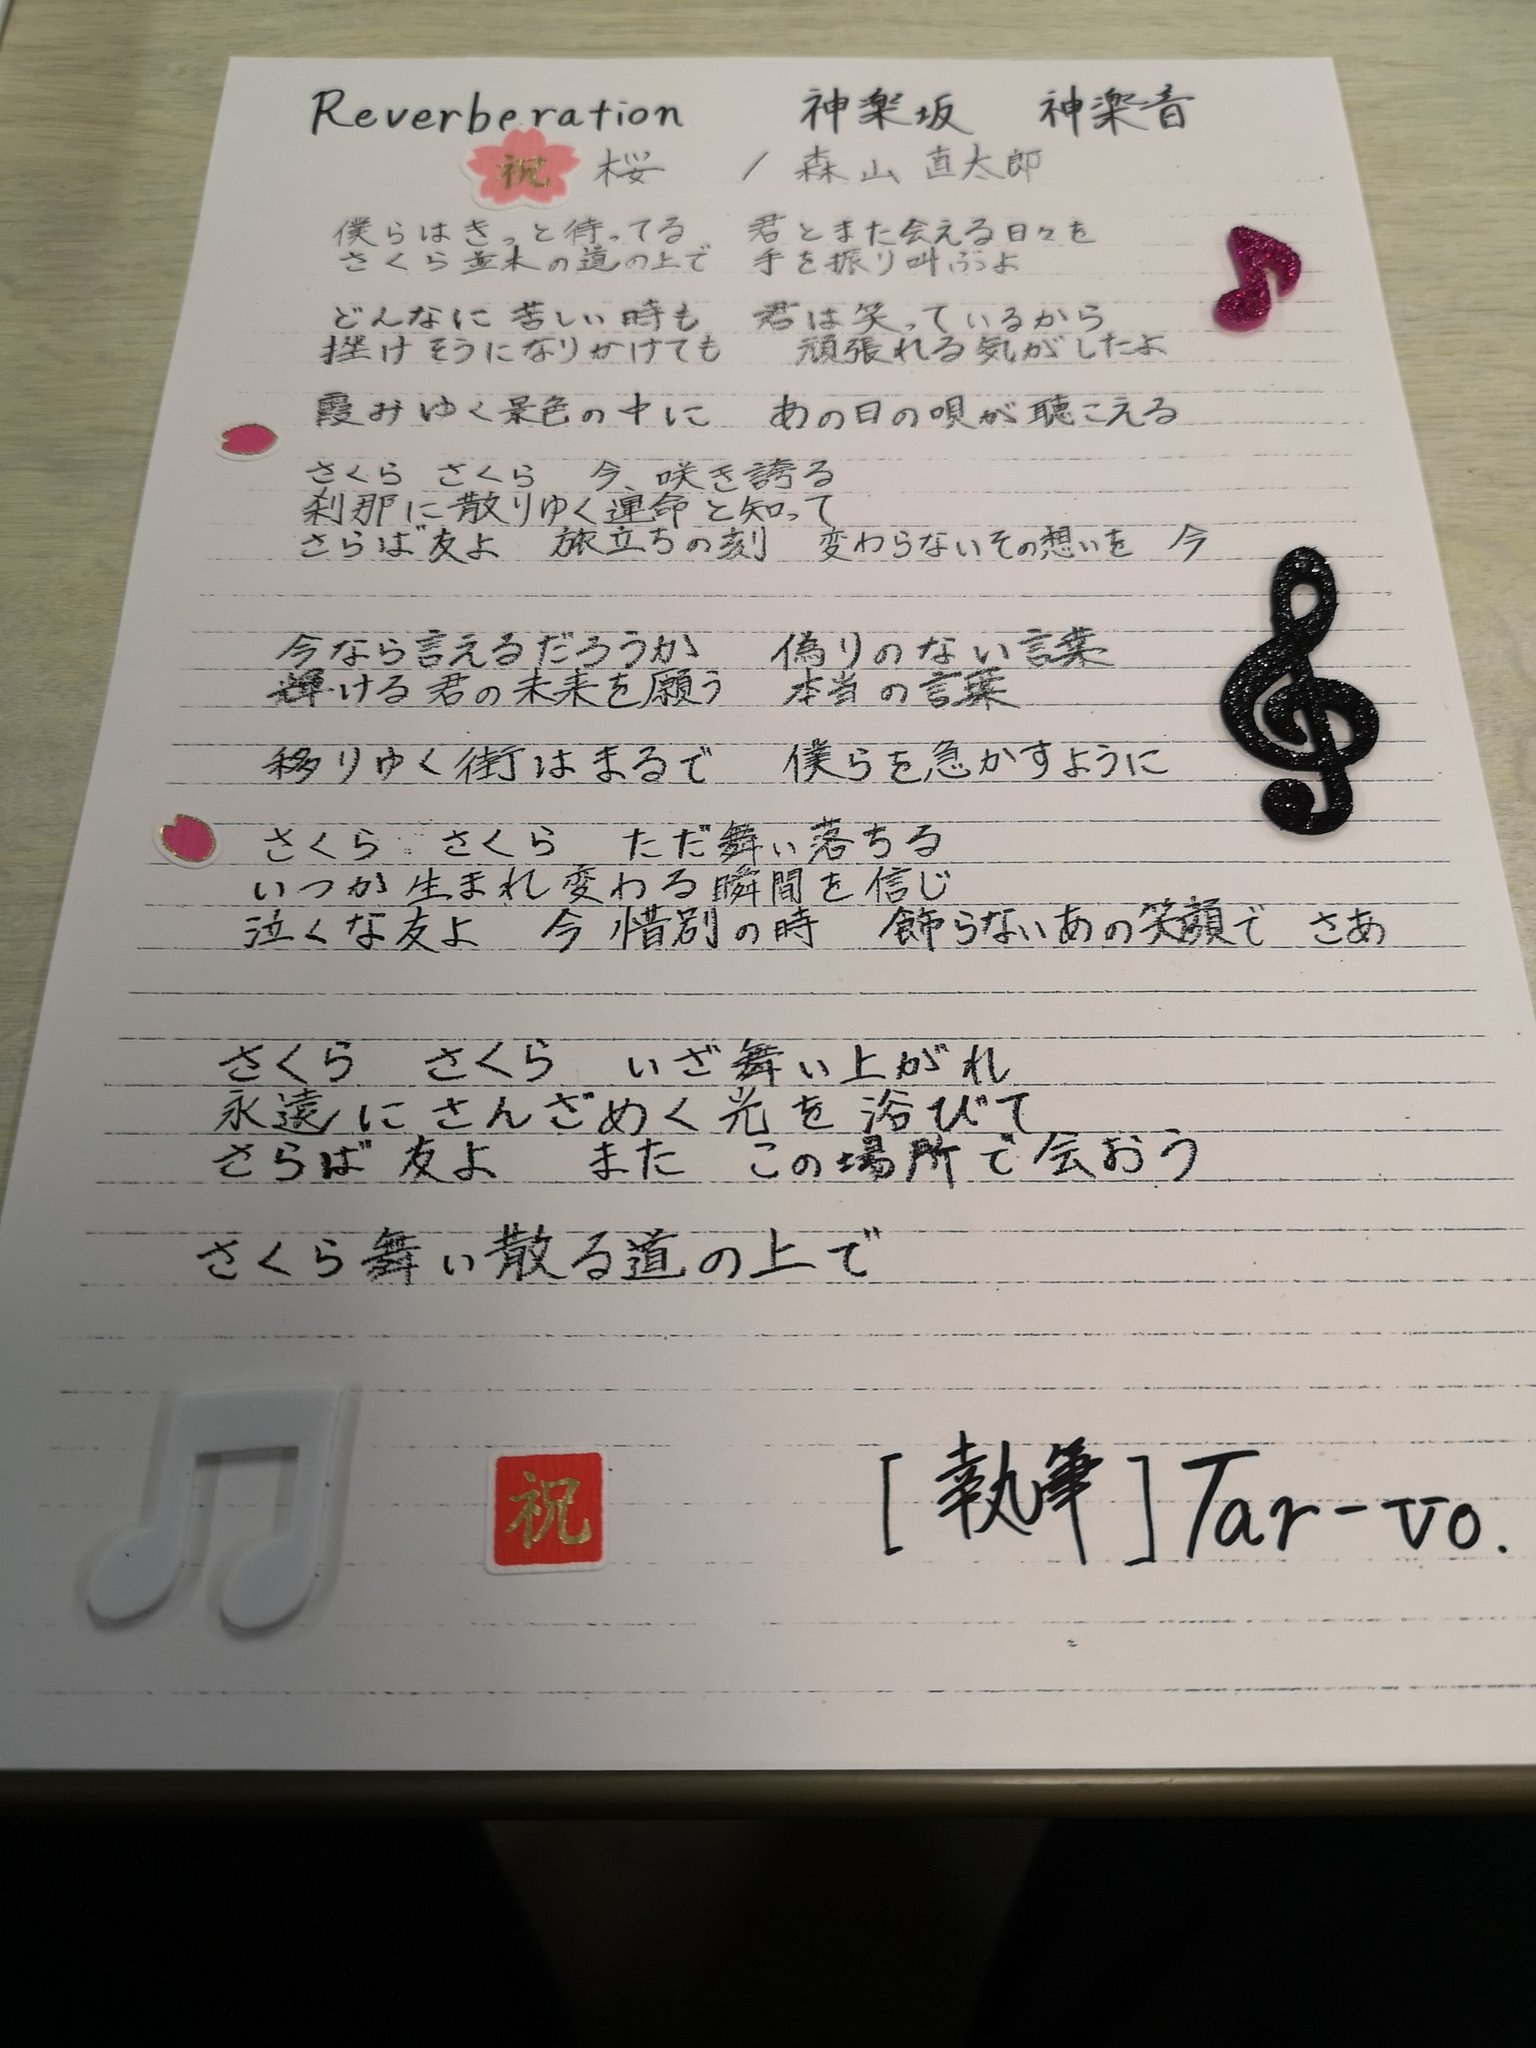 Reverberation 神楽坂 神楽音
祝 桜 / 森山直太郎
僕らはきっと待ってる 君とまた会える日々を
さくら並木の道の上で 手を振り叫ぶよ
どんなに苦しい時も 君は笑っているから
挫けそうになりかけても 頑張れる気がしたよ
霞みゆく景色の中に あの日の唄が聴こえる
さくら さくら 今、咲き誇る
刹那に散りゆく運命と知って
さらば友よ 旅立ちの刻 変わらないその想いを 今
今なら言えるだろうか 偽りのない言葉
輝ける君の未来を願う 本当の言葉
移りゆく街はまるで 僕らを急かすように
さくら さくら ただ舞い落ちる
いつか生まれ変わる瞬間を信じ
泣くな友よ 今惜別の時 飾らないあの笑顔で さあ
さくら さくら いざ舞い上がれ
永遠にさんざめく光を浴びて
さらば友よ また この場所で会おう
さくら舞い散る道の上で
祝 [執筆] Tar-vo.